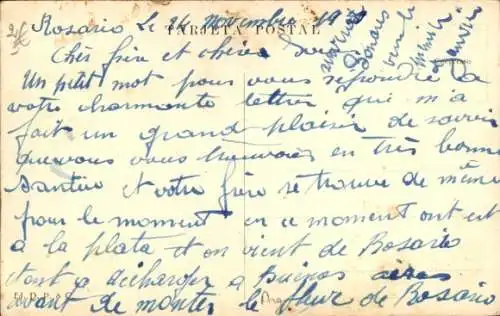 Rosario Le 24 Novembre 19
TARJETA POSTAL
Cher frère et chère
Un petit mot pour vous répondre a
votre charmante lettre qui m'a
fait un grand plaisir de savoir
que vous vous trouvais en très bonne
santée et votre frère se trouve de même
pour le moment en ce moment ont est
a la plata et on vient de Rosario
dont a décharger a Buenos aires
avant de monter le fleuve de Rosario